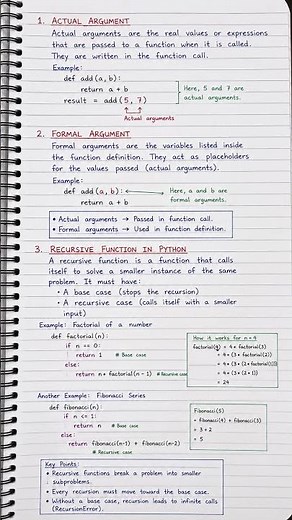 1. ACTUAL ARGUMENT
Actual arguments are the real values or expressions
that are passed to a function when it is called.
They are written in the function call.
Example:
def add(a, b):
return a + b
result = add(5, 7)
Here, 5 and 7 are
actual arguments.
Actual arguments
2. FORMAL ARGUMENT
Formal arguments are the variables listed inside
the function definition. They act as placeholders
for the values passed (actual arguments).
Example:
def add(a, b):
return a + b
Here, a and b are
formal arguments.
• Actual arguments → Passed in function call.
• Formal arguments → Used in function definition.
3. RECURSIVE FUNCTION IN PYTHON
A recursive function is a function that calls
itself to solve a smaller instance of the same
problem. It must have:
• A base case (stops the recursion)
• A recursive case (calls itself with a smaller
input)
Example: Factorial of a number
def factorial(n):
if n == 0:
return 1 # Base case
else:
return n * factorial(n-1) # Recursive case
How it works for n = 4
factorial(4) = 4 * factorial(3)
= 4 * (3 * factorial(2))
= 4 * (3 * (2 * factorial(1)))
= 4 * (3 * (2 * 1))
= 24
Another Example: Fibonacci Series
def fibonacci(n):
if n <= 1:
return n # Base case
else:
return fibonacci(n-1) + fibonacci(n-2)
# Recursive case
Fibonacci(5)
= fibonacci(4) + fibonacci(3)
= 3 + 2
= 5
Key Points:
• Recursive functions break a problem into smaller
subproblems.
• Every recursion must move toward the base case.
• Without a base case, recursion leads to infinite calls
(RecursionError).